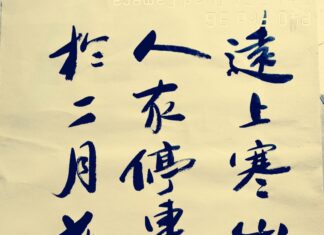 遠上寒山
人家停車
於二月花